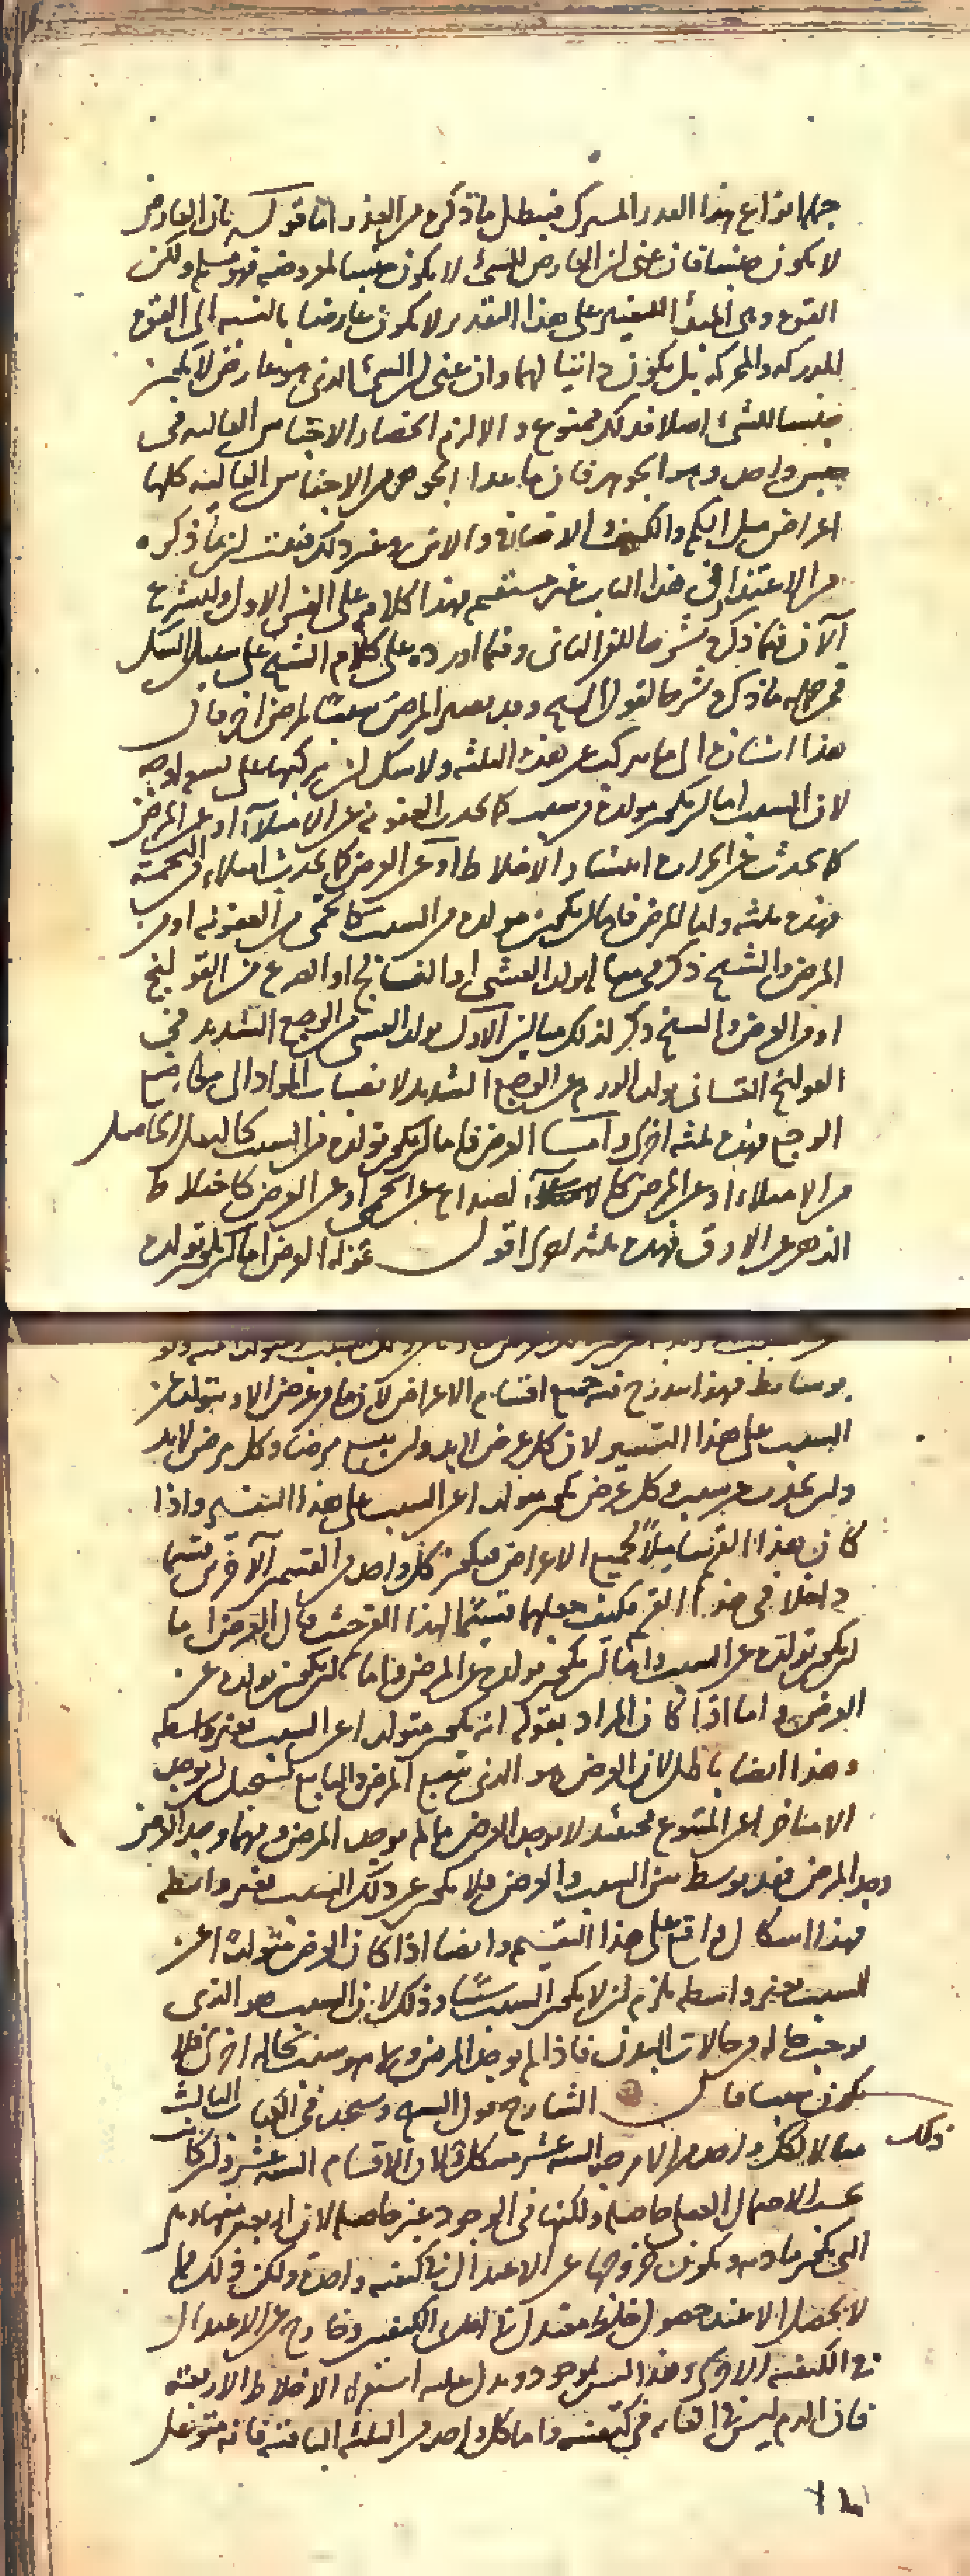 انواع هذا القدر المشترك فيبطل ما ذكره من العذر اما قوله بان العارض
لا يكون جنسا فان عنى ان العارض للشئ لا يكون جنسا لمعروضه فهو مسلم ولكن
القوة وهى المبدأ للتغير على هذا التقدير لا يكون عارضا بالنسبة الى القوة
المدركة والمحركة بل يكون ذاتيا لهما وان عنى ان الشئ الذى هو عارض لا يكون
جنسا للشئ اصلا فذلك ممنوع والا لزم انحصار الاجناس العالية فى
جنس واحد وهو الجوهر فان ما عدا الجوهر من الاجناس العالية كلها
اعراض مثل الكم والكيف والاضافة والاين وغير ذلك فثبت ان ما ذكره
من الاعتذار فى هذا الباب غير مستقيم فهذا كلام على الفن الاول ولنشرع
الآن فيما ذكره شرحا للفن الثانى وفيما اورده على كلام الشيخ على سبيل الشك
فمن جملة ما ذكره شرحا لقول الشيخ وقد يصير المرض سببا لمرض اخر قال
هذا اشارة الى ما يتركب عن هذه الثلثة ولا شك ان تركبها على تسعة اوجه
لان السبب اما ان يكون تولده من سبب كما يحدث العفونة عن الامتلاء او عن المرض
كما يحدث عن الحرارة انتشار الاخلاط او عن العرض كما يحدث امتلاء من التخمة
فهذه ثلثة واما المرض فاما ان يكون تولده من السبب كالحمى من العفونة او من
المرض والشيخ ذكر فى مثاله تولد الغشى او الفالج او الصرع من القولنج
او من العرض والشيخ ذكر لذلك مثالين الاول تولد الغشى من الوجع الشديد فى
القولنج الثانى تولد الورم عن الوجع الشديد لانصباب المواد الى موضع
الوجع فهذه ثلثة اخرى واما العرض فاما ان يكون تولده من السبب كالثقل الحاصل
من الامتلاء او عن المرض كالصداع عن الحمى او عن العرض كاختلاط
الذهن عن الارق فهذه ثلثة اخرى اقول قوله العرض اما ان يكون تولده
بوسائط فهذا يندرج فيه جميع اقسام الاعراض لان ما من عرض الا ويتولد عن
السبب على هذا التفسير لان كل عرض لابد وان يتبع مرضا وكل مرض لابد
وان يحدث عن سبب وكل عرض يكون متولدا عن السبب على هذا التفسير واذا
كان هذا القسم شاملا لجميع الاعراض فيكون كل واحد من القسمين الآخرين قسما
داخلا فى هذا القسم فكيف جعلهما قسيما لهذا القسم حيث قال العرض اما
ان يكون تولده عن السبب واما ان يكون تولده عن المرض واما ان يكون تولده عن
العرض واما اذا كان المراد بقوله انه يكون متولدا عن السبب بغير واسطة
وهذا ايضا باطل لان العرض هو الذى يتبع المرض والتابع يستحيل ان يوجد
الا متاخرا عن المتبوع فحينئذ لا يوجد العرض ما لم يوجد المرض ومهما وجد العرض
وجد المرض فقد توسط بين السبب والعرض فلا يكون عن ذلك السبب بغير واسطة
فهذا اشكال واقع على هذا التقسيم وايضا اذا كان العرض متولدا عن
السبب بغير واسطة يلزم ان لا يكون السبب سببا وذلك لان السبب هو الذى
يوجب حالة من حالات البدن فاذا لم يوجد المرض ولا هو سبب لحالة اخرى فلا
يكون سببا قال الشارح قول الشيخ وستجد فى الكتاب الثالث
ذلك
مثالا لكل واحد من الامراض الستة عشر مشكل لان الاقسام الستة عشر وان كانت
بحسب الاحتمال العقلى حاصلة ولكنها فى الوجود غير حاصلة لان اربعة منها وهى
التى يكون مادية ويكون خروجها عن الاعتدال فى كيفية واحدة ولكن ذلك مما
لا يحصل الا عند حصول خلط معتدل فى احدى الكيفيتين وخارج عن الاعتدال
فى الكيفية الاخرى وهذا ليس بموجود ويدل عليه استقراء الاخلاط الاربعة
فان الدم ليس فى الغاية فى كيفيته واما كل واحد من الثلثة الباقية فانه متوغل